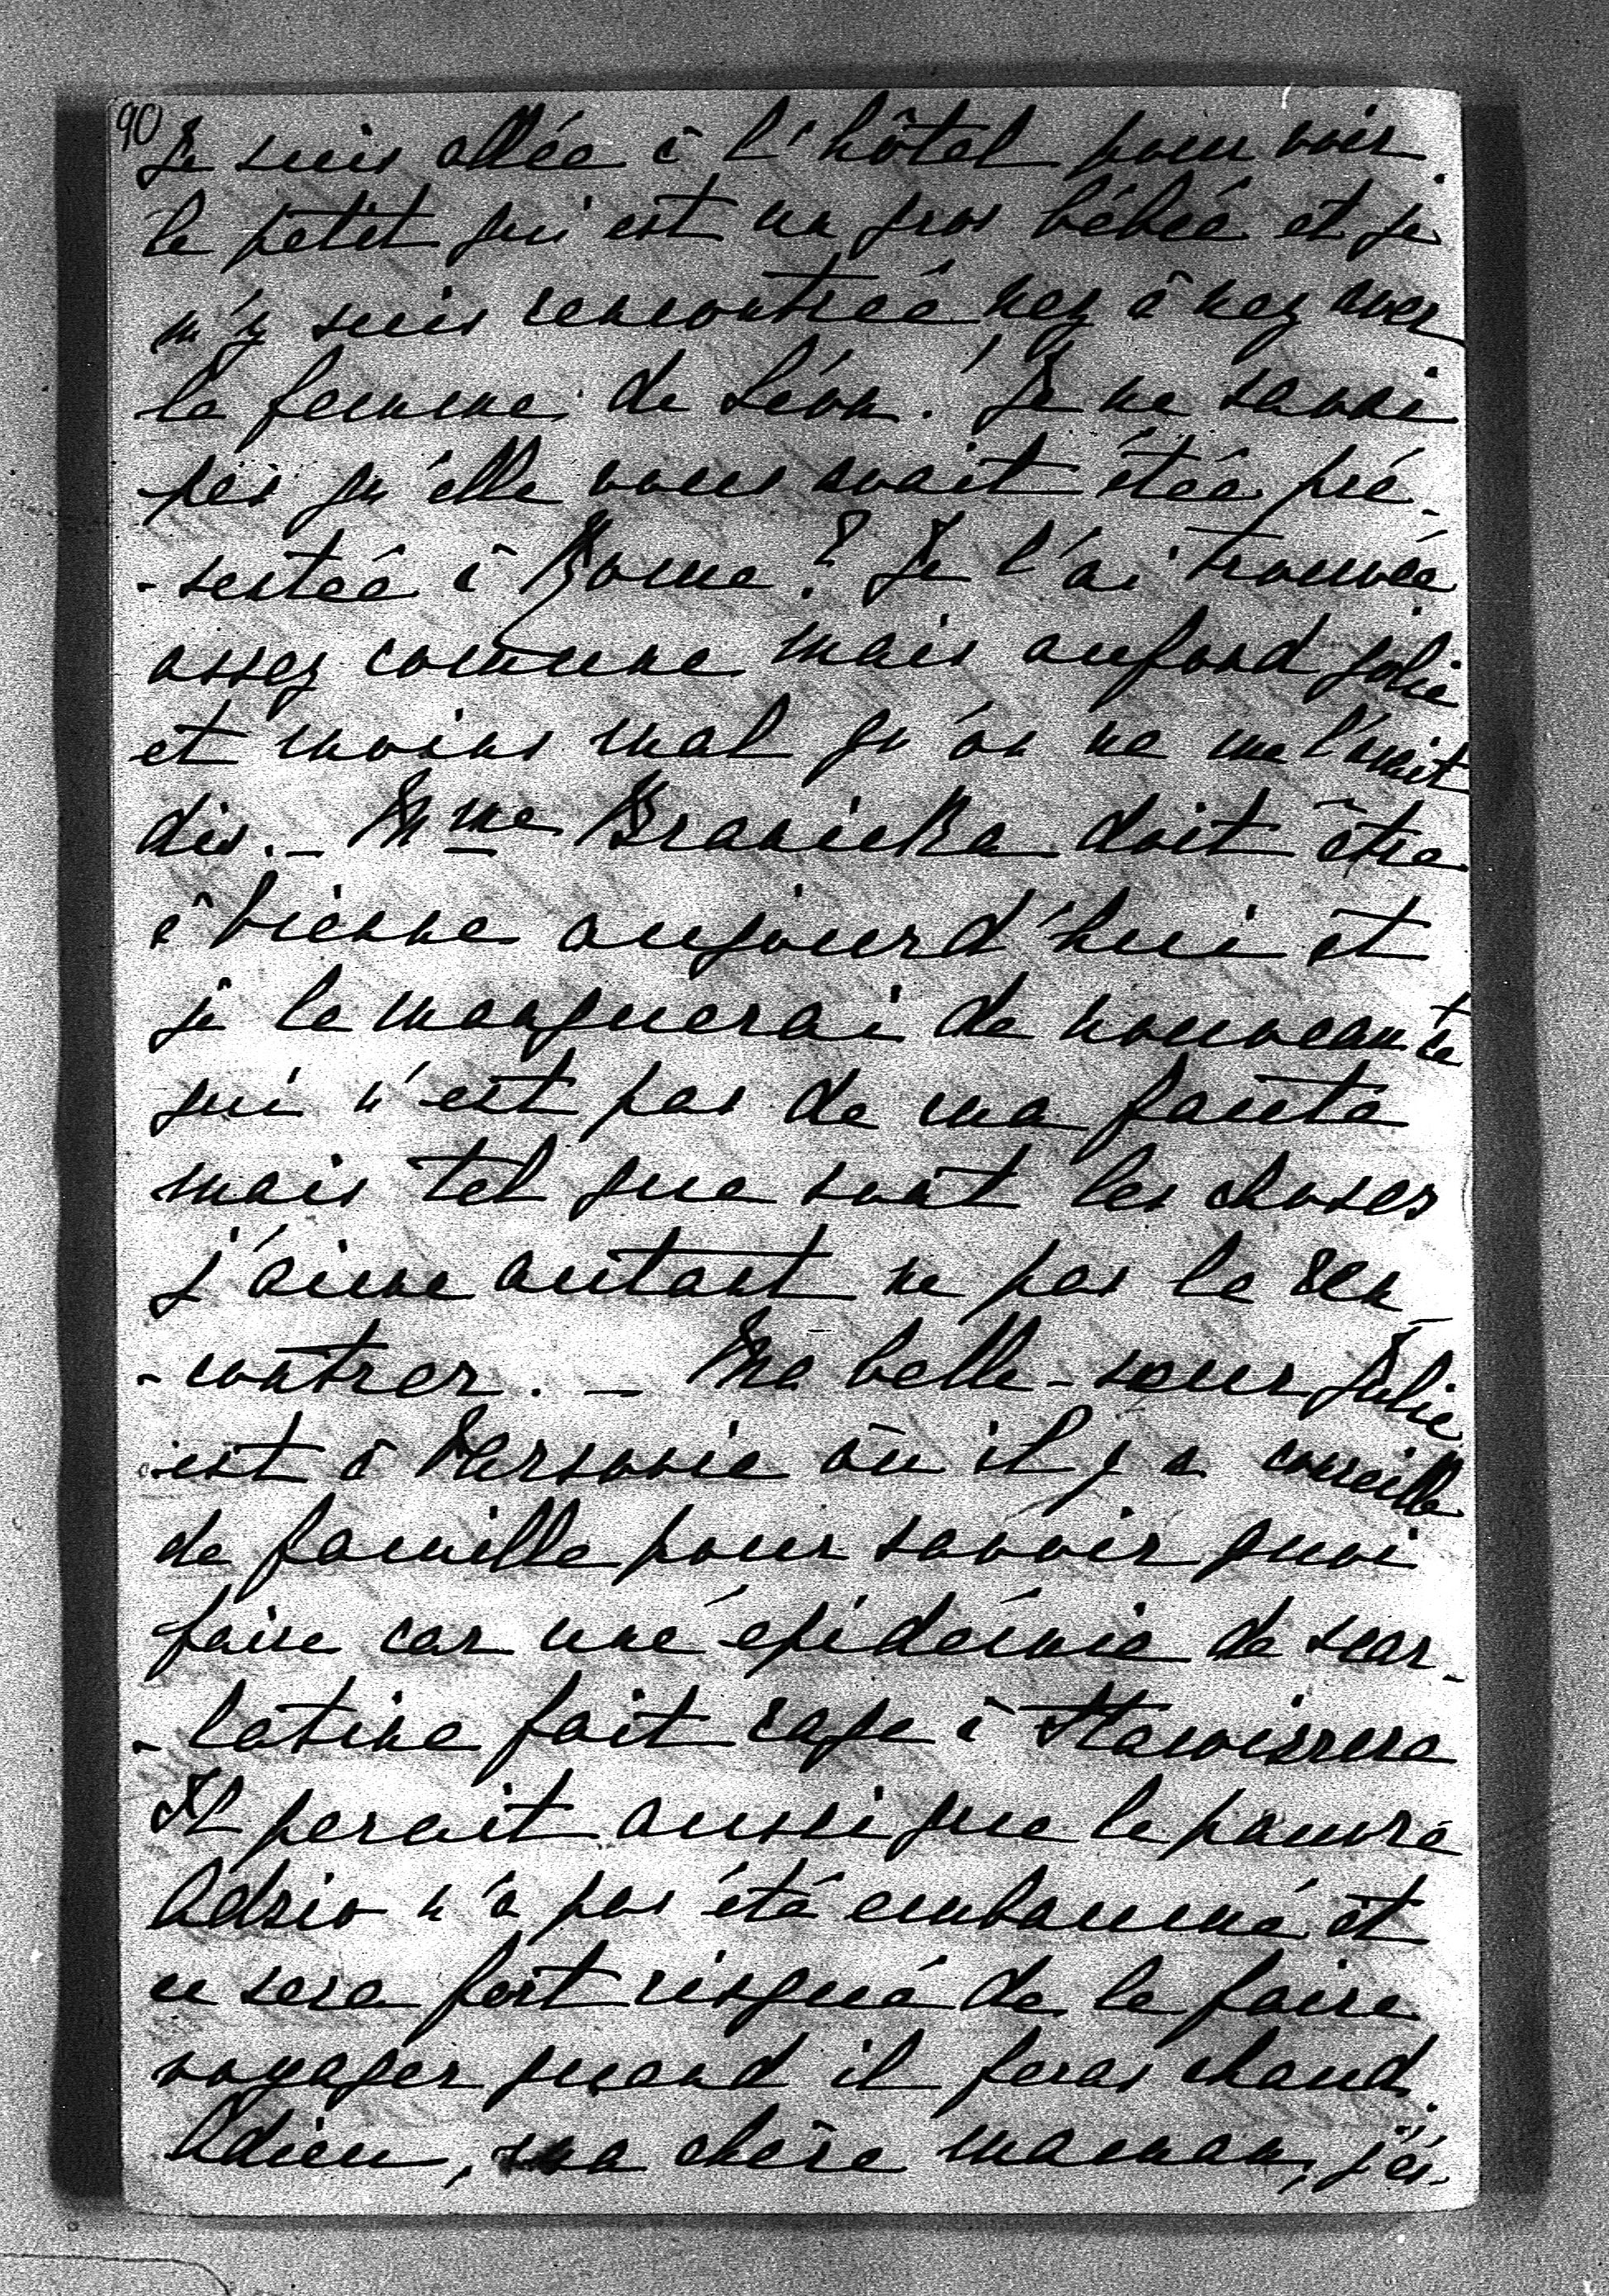 90
Je suis allée à l'hôtel pour voir
le petit qui est un gros bébée et je
m'y suis rencontrée nez à nez avec
la femme de Léon. Je ne savai
pas qu'elle vous avait étée pré-
-sentée à Rome? Je l'ai trouvée
assez comune mais aufond jolie
et moins mal qu'on ne me l'avait
dis. - Mme Branicka doit être
à Vienne aujourd'hui et
je la manquerai de nouveau ce
qui n'est pas de ma faute
mais tel que sont les choses
j'aime autant ne pas la ren-
-contrer. - Ma belle-sœur Julie
est à Varsovie où il y a conseille
de famille pour savoir quoi
faire car une épidémie de scar-
-latine fait rage à
Il parait aussi que le pauvre
Adzio n'a pas été embaumé et
ce sera fort risqué de le faire
voyager quand il feras chaud.
Adieu, ma chère maman, j'es-